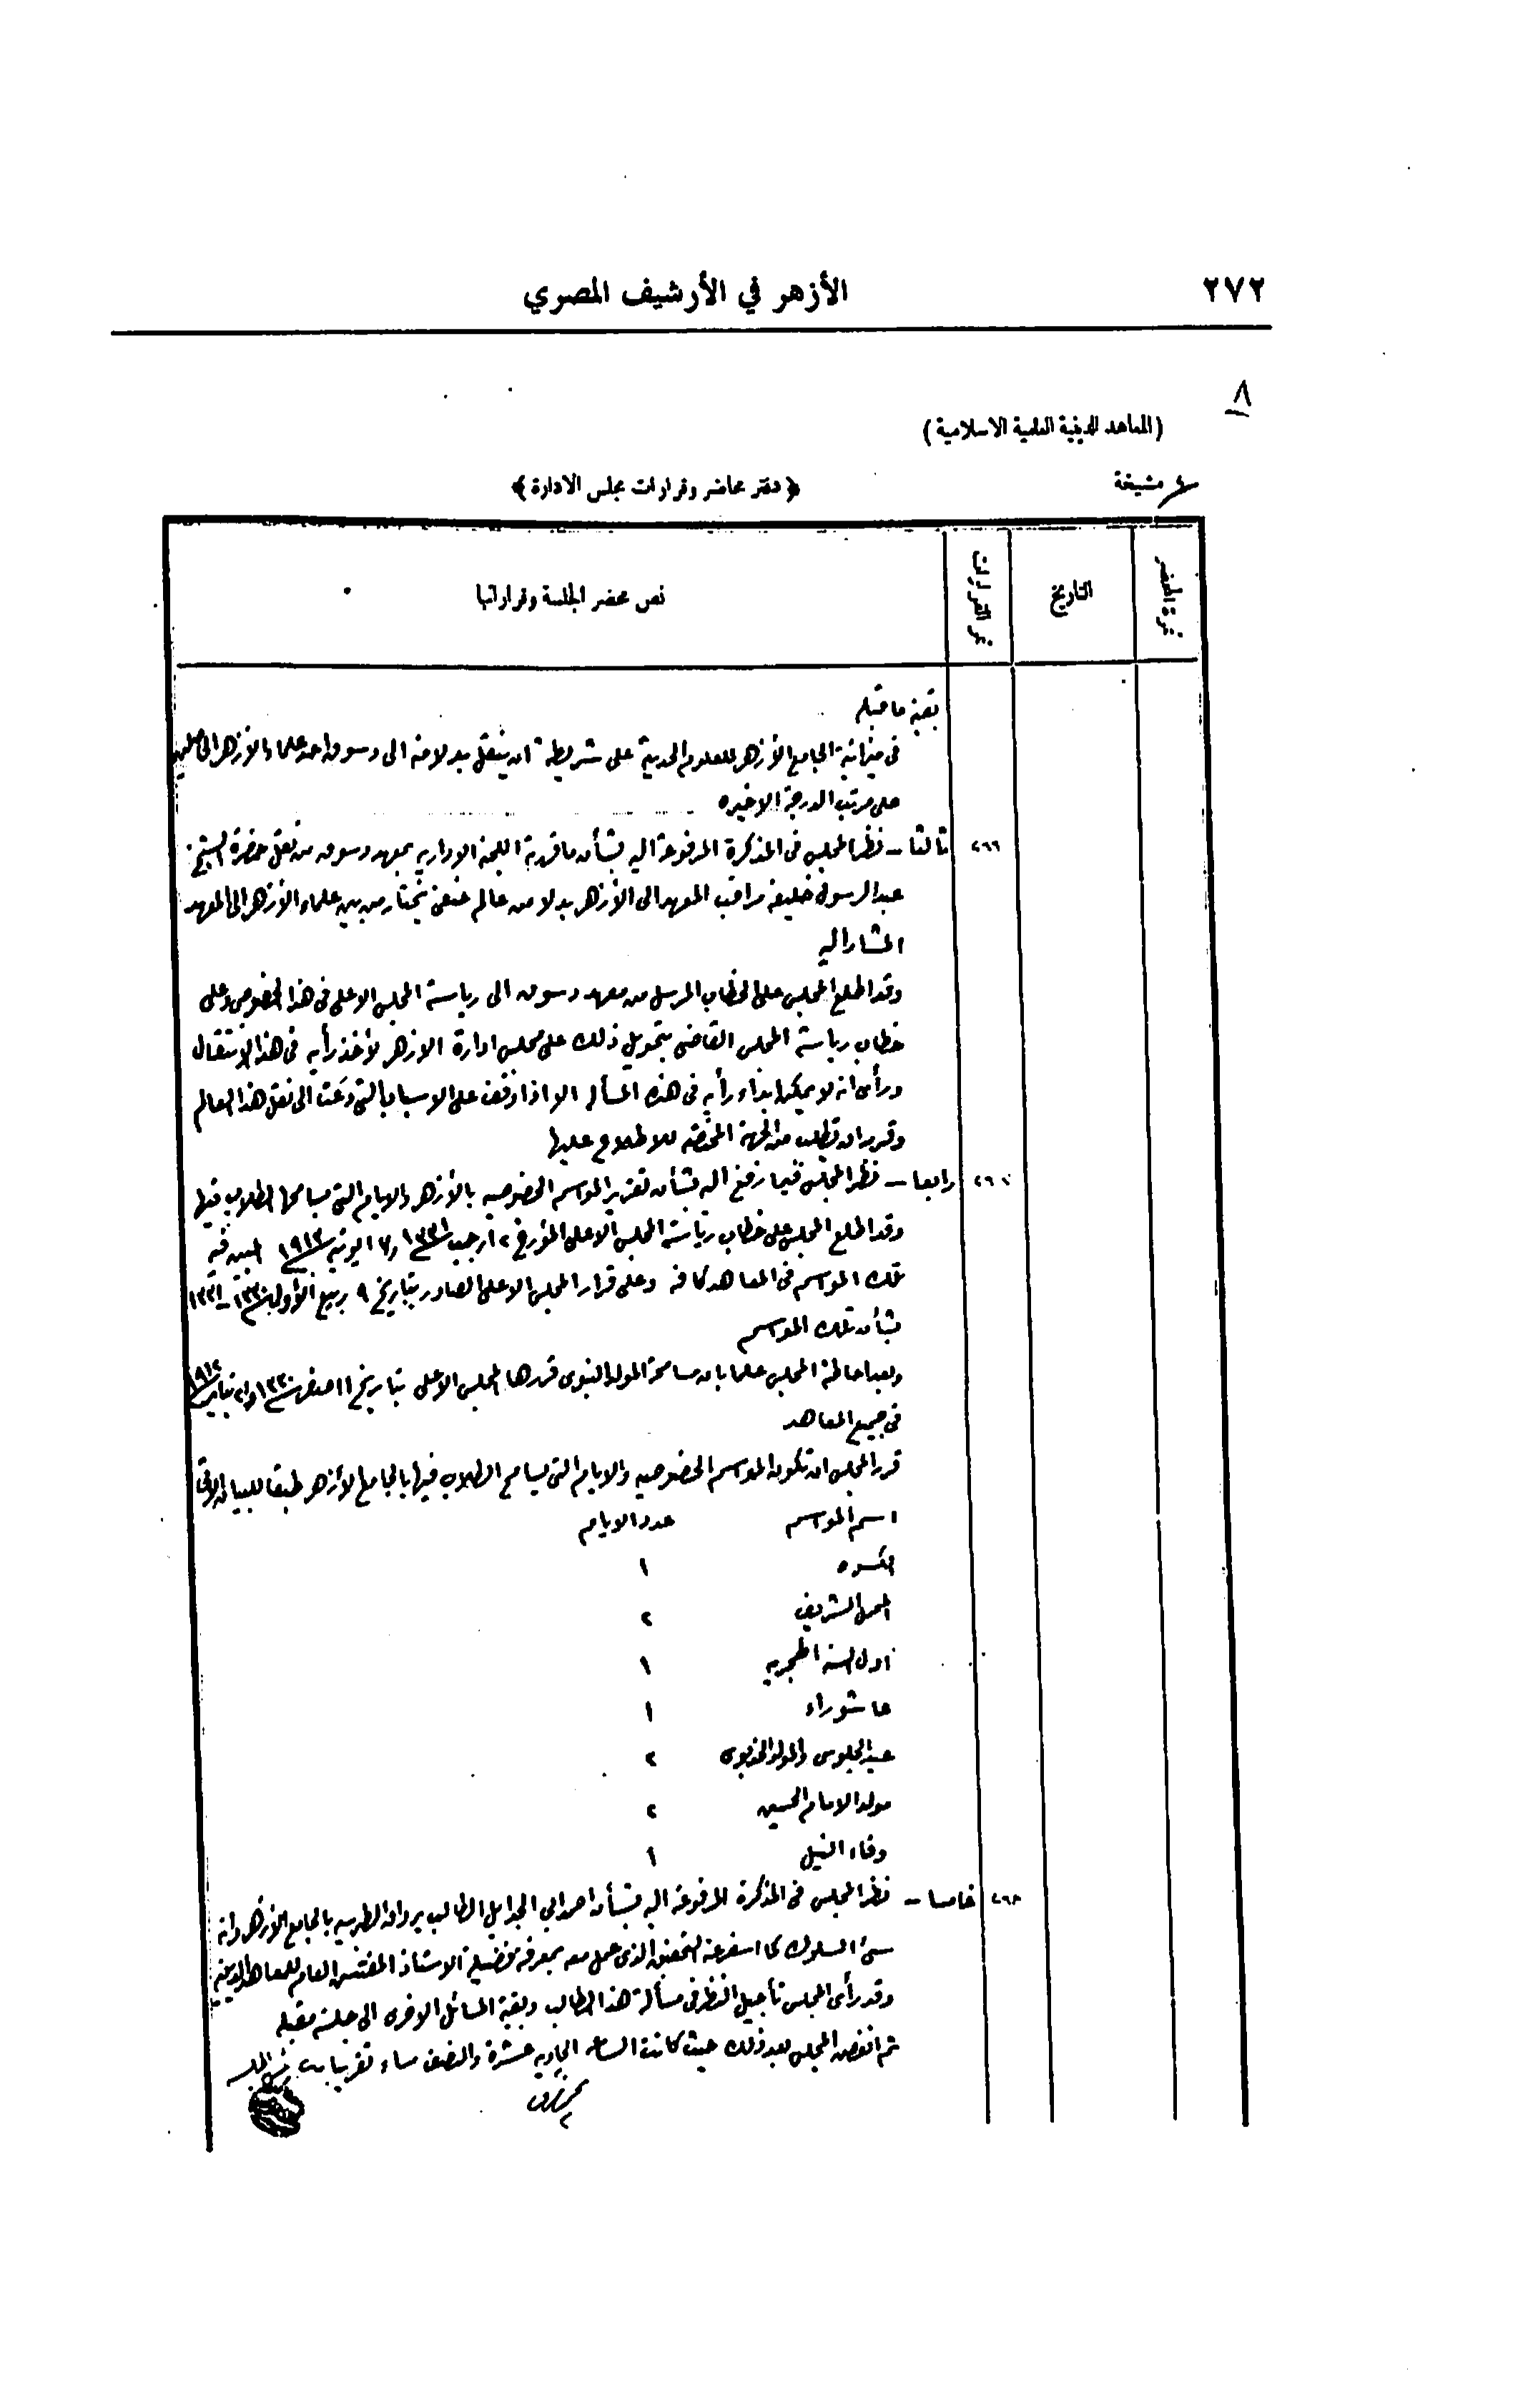 ٢٧٢
الأزهر في الأرشيف المصري
٨
(المعاهد الدينية العلمية الاسلامية)
مشيخة
﴿ دفتر محاضر وقرارات مجلس الادارة ﴾
نمرة المحضر
التاريخ
نمر القرارات
نص محضر الجلسة وقراراتها
بقية ما قبله
فى ميزانية الجامع الأزهر للعلوم الحديثة على شريطة ان ينقل بدلا منه الى دسوق احد علماء الأزهر
على مرتب الدرجة الاخيره
٢٦٦ ثالثا — نظر المجلس فى المذكرة المرفوعة اليه بشأن ما قررته اللجنة الادارية بمعهد دسوق من نقل حضرة الشيخ
عبد الرسول خليفه مراقب المعهد الى الأزهر بدلا من عالم حنفى يختار من بين علماء الأزهر الى المعهد
المشار اليه
وقد اطلع المجلس على الخطاب المرسل من معهد دسوق الى رياسة المجلس الاعلى فى هذا الخصوص وعلى
خطاب رياسة المجلس القاضى بتحويل ذلك على مجلس ادارة الازهر لأخذ رأيه فى هذا الانتقال
ورأى انه لا يمكن ابداء رأيه فى هذه المسألة الا اذا وقف على الاسباب التى دعت الى نقل هذا العالم
وقرر ان تطلب من الجهة المختصة للاطلاع عليها
٢٦٧ رابعا — نظر المجلس فيما رفع اليه بشأن تقرير المواسم الخصوصيه بالأزهر والايام التى يسامح الطلاب فيها
وقد اطلع المجلس على خطاب رياسة المجلس الاعلى المؤرخ ١٢ رجب سنة ١٣٣١ و١٧ يونيه سنة ١٩١٣ المبين فيه
تلك المواسم فى المعاهد كافة وعلى قرار المجلس الاعلى الصادر بتاريخ ٩ ربيع الأول
بشأن تلك المواسم
وبعد احاطة المجلس علما بان مسامحة المولد النبوى قررها المجلس الاعلى بتاريخ ١١ صفر سنة ١٣٣٠ و يناير سنة ١٩١٢
فى جميع المعاهد
قرر المجلس ان تكون المواسم الخصوصيه والايام التى يسامح الطلاب فيها بالجامع الأزهر طبقا للبيان الاتى
اسم الموسم عدد الايام
الكسوه ١
المحمل الشريف ٢
أول السنه الهجريه ١
عاشوراء ١
عيد الجلوس والمولد الخديوى ٢
مولد الامام الحسين ٢
وفاء النيل ١
٢٦٨ خامسا — نظر المجلس فى المذكرة المرفوعة اليه بشأن احمد الطالب برواق بالجامع الأزهر وانه
سئ السلوك كما اسفر عنه التحقيق الذى عمل معه بمعرفة فضيلة الاستاذ المفتش العام للمعاهد الدينيه
وقد رأى المجلس تأجيل النظر فى مسألة هذا الطالب وبقية المسائل الاخرى الى جلسة مقبله
ثم انفض المجلس بعد ذلك حيث كانت الساعه الحاديه عشرة والنصف مساء تقريبا